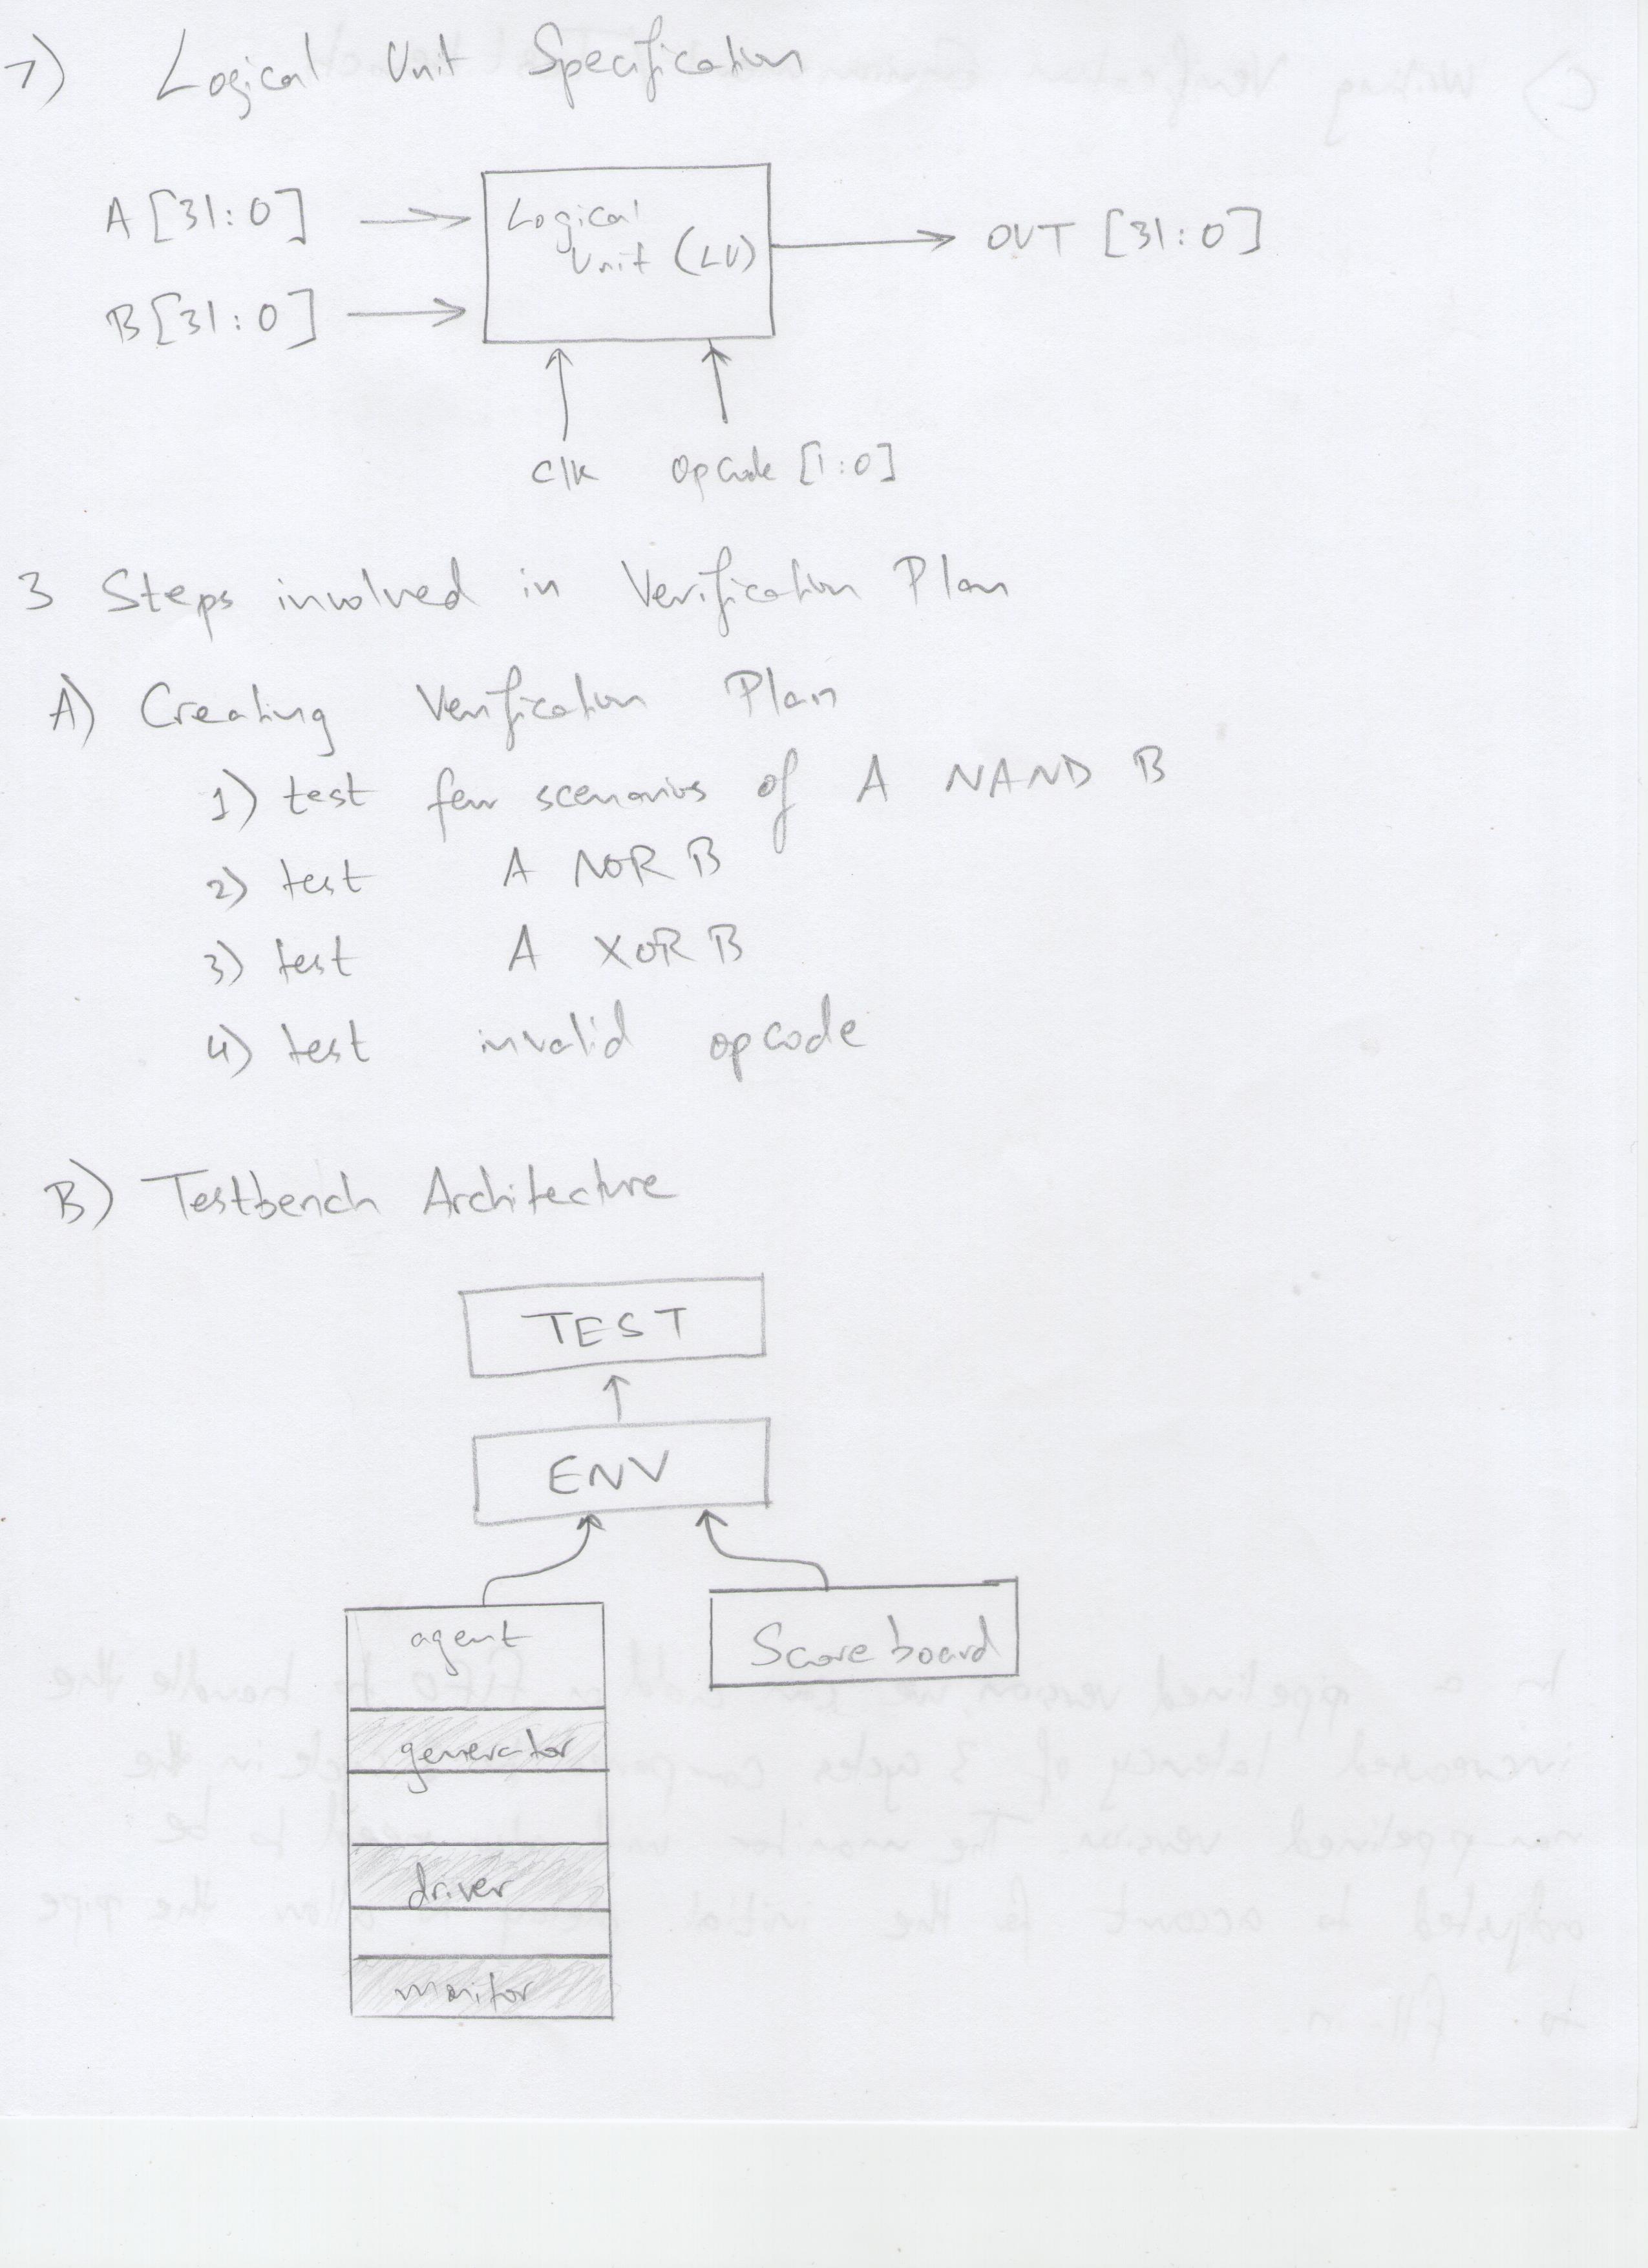 7) Logical Unit Specification
A [31:0]
B [31:0]
Logical
Unit (LU)
OUT [31:0]
clk opcode [1:0]
3 Steps involved in Verification Plan
A) Creating Verification Plan
1) test few scenarios of A NAND B
2) test A NOR B
3) test A XOR B
4) test invalid opcode
B) Testbench Architecture
TEST
ENV
agent
Scoreboard
generator
driver
monitor